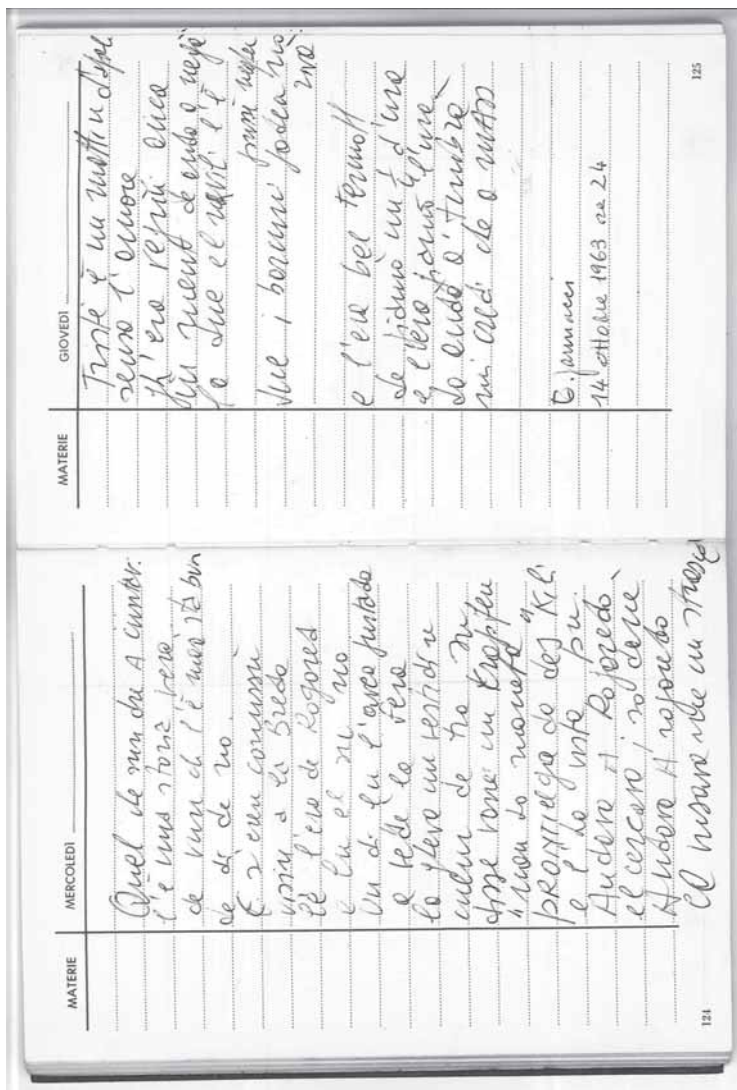 MATERIE MERCOLEDÌ
Quel che mi sun dre A cuntàr.
l'è una storia vera
de vun ch l'è mai stà bun
de dì de no.
E s eren conussù
visin a la Breda
lè l'era de Rogored
e lu el su no
Un dì lu l'aveva purtada
a vedè la Fera
la gheva un vestidin
culur de tra su
disse vorrei un krapfen
"non ho moneta"
PRONTI el ga da des Kili
e l'ha vista pu.
Andava A Rogoredo,
el cercava i so danè
Andava A rogoredo
el vusava me un strasè
124
MATERIE GIOVEDÌ
Triste è un mattin d'april
senza l'amore
fin el mument de andà a negà
la due el navili l'è
pusè negher
due i barcuni poden no
rivà
e l'era bel
de bidun un è d'una
e l'era
ma andà a
mi cald de a maso
E. Jannacci
14 ottobre 1963 ore 24
125